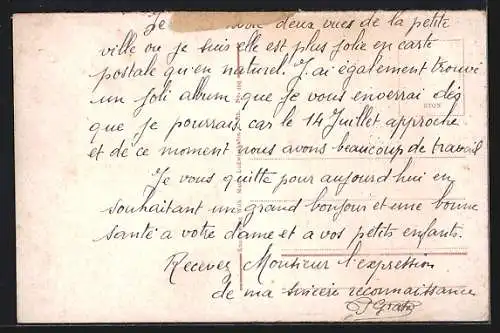 Je deux vues de la petite
ville ou je suis elle est plus jolie en carte
postale qu'en naturel. J'ai également trouvé
un joli album que je vous enverrai dès
que je pourrais car le 14 Juillet approche
et de ce moment nous avons beaucoup de travail
Je vous quitte pour aujourd hui en
souhaitant un grand bonjour et une bonne
santé a votre dame et a vos petits enfants.
Recevez Monsieur l'expression
de ma sincère reconnaissance